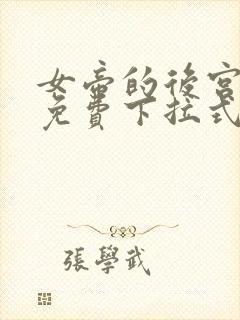 女帝的後宮
免費下拉式
張學武